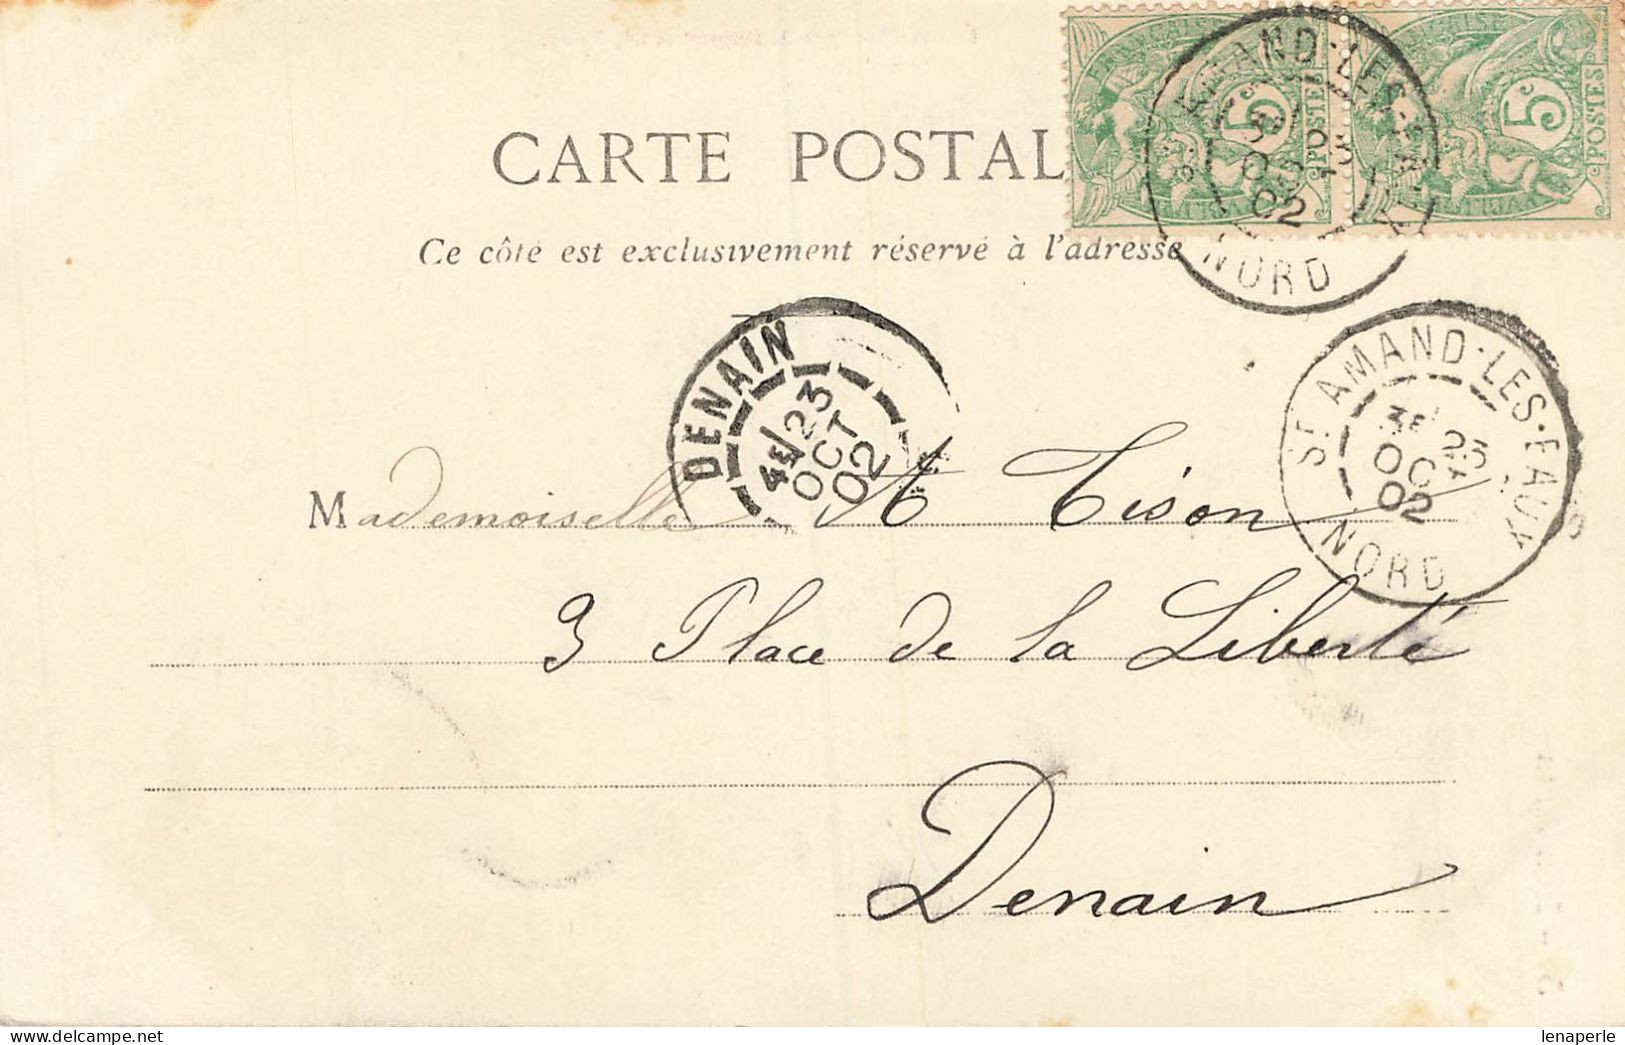 CARTE POSTAL
Ce côté est exclusivement réservé à l'adresse
FRANÇAISE
5c
POSTES
5c
POSTES
AMAND-LES-EAUX
OC
02
NORD
DENAIN
4E 23
OCT
02
ST AMAND-LES-EAUX
3E 23
OCT
02
NORD
Mademoiselle A Tison
3 Place de la Liberté
Denain
lenaperle